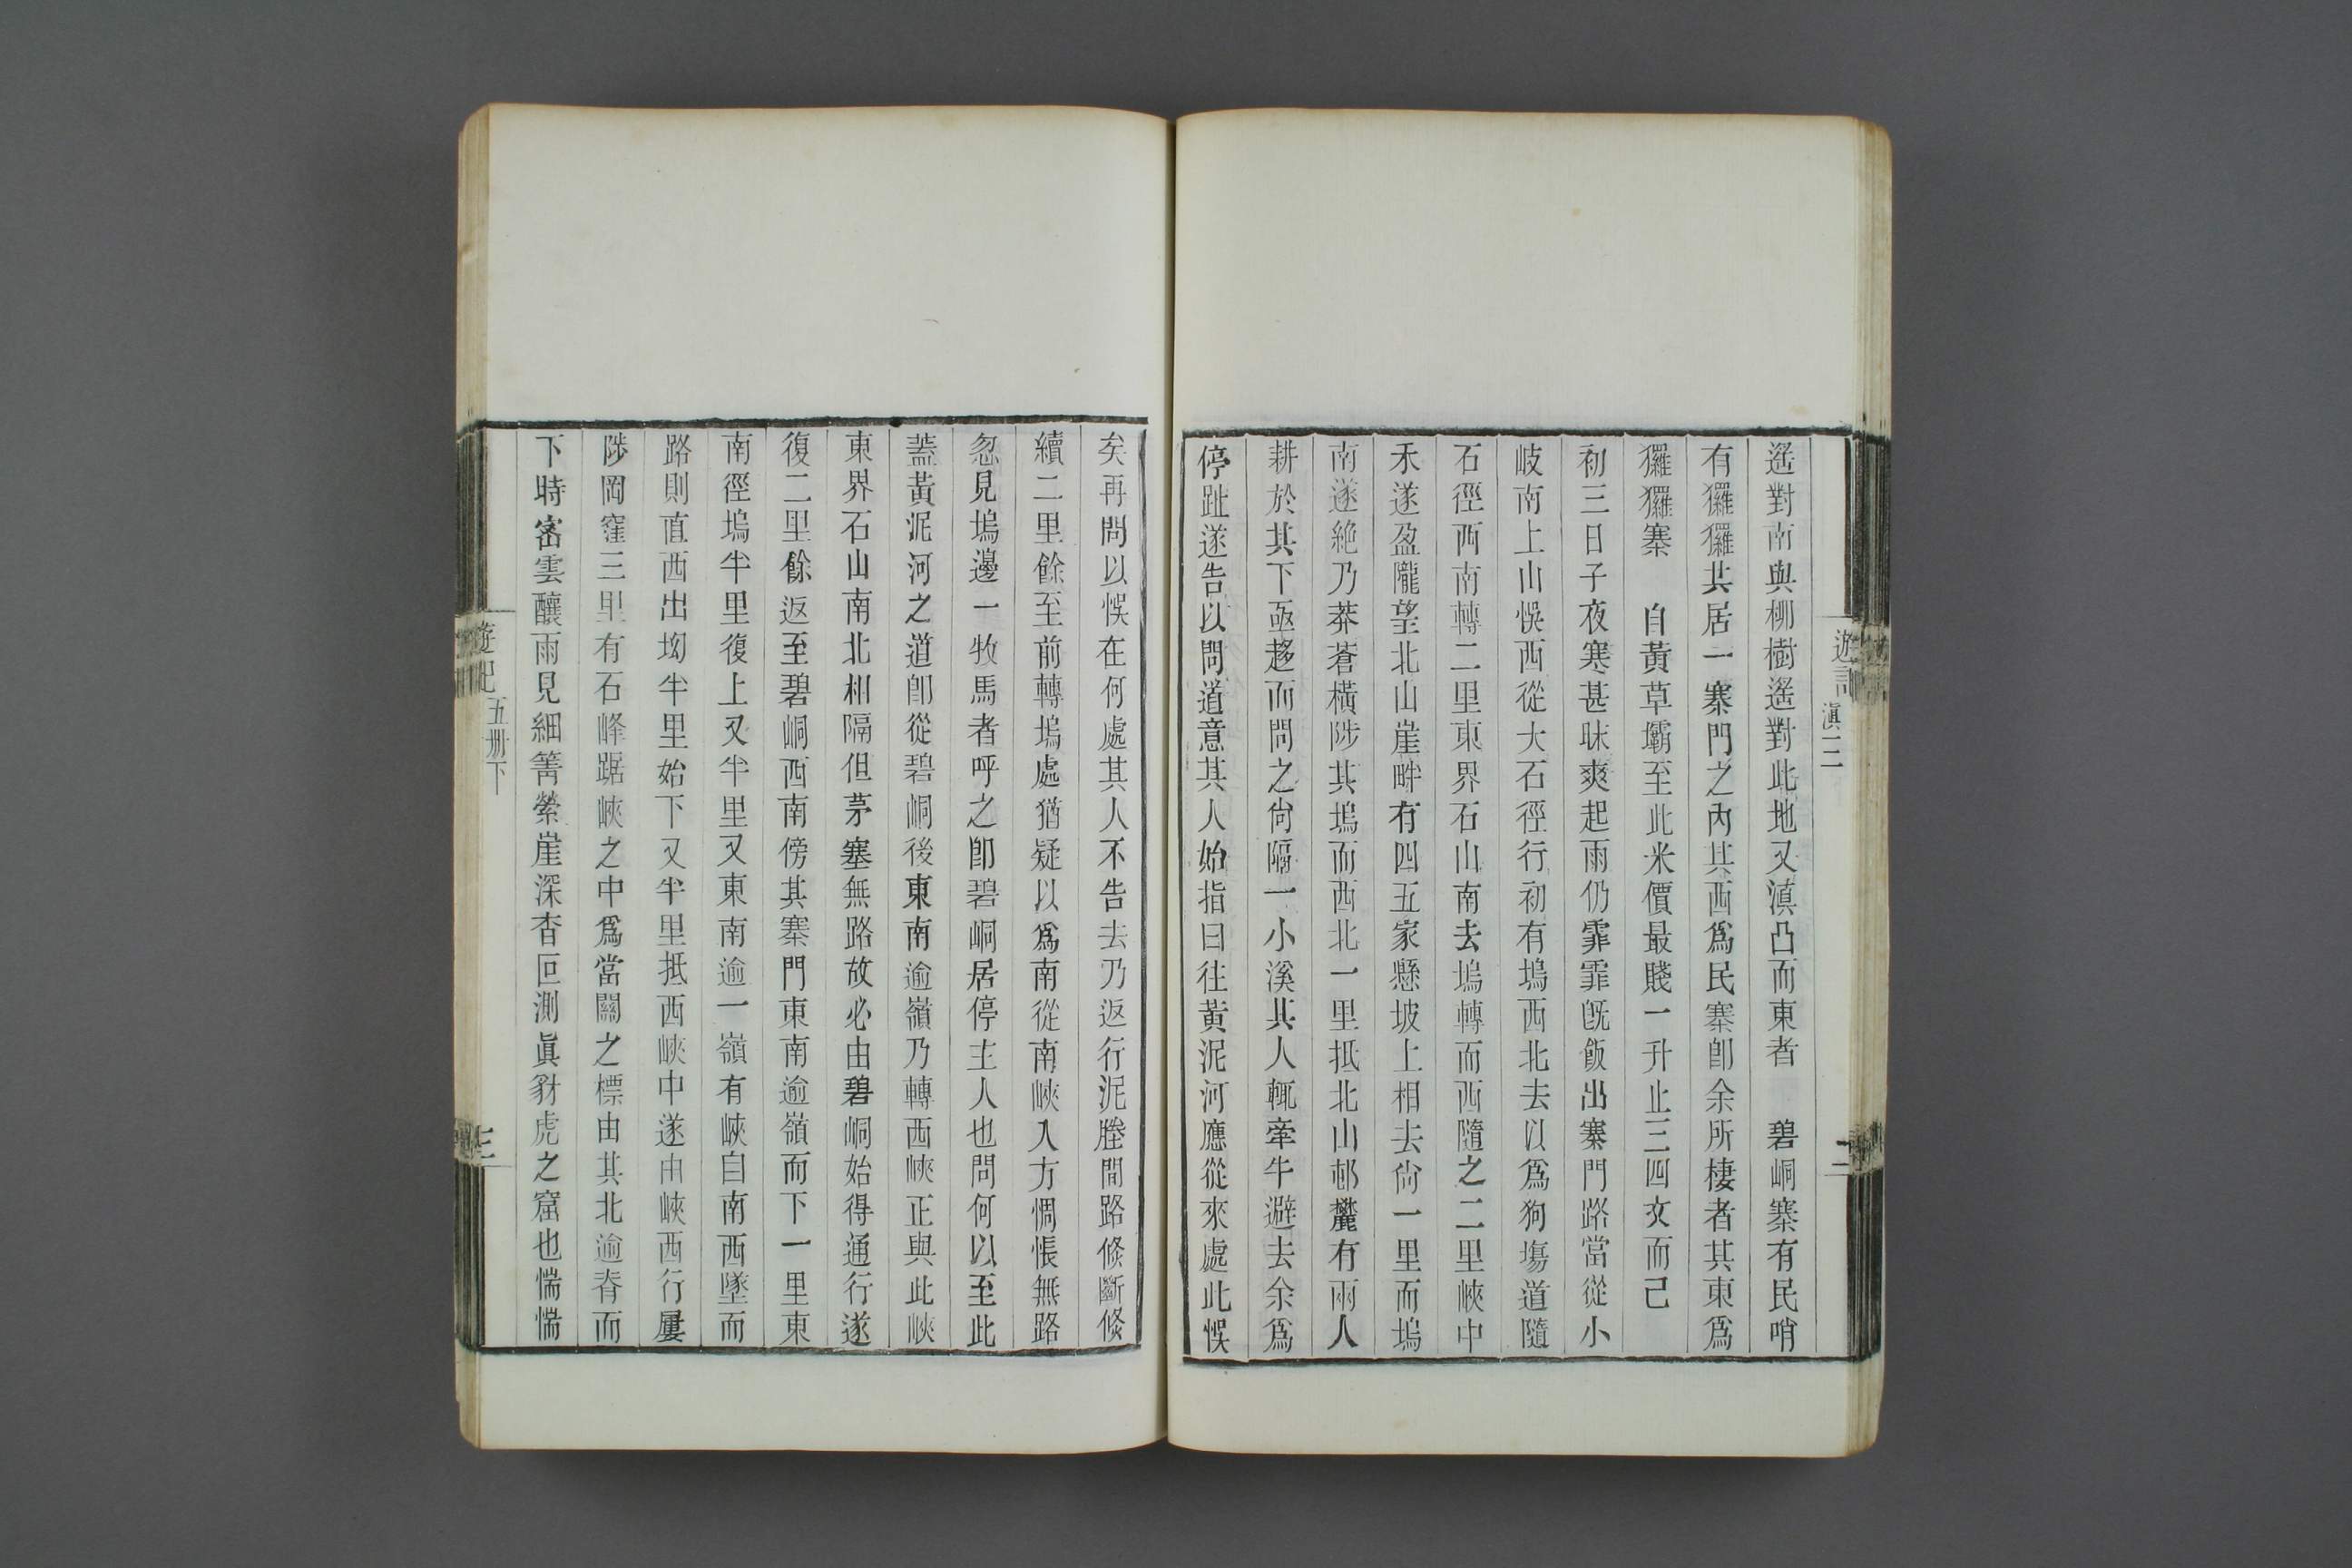 遊記
滇三
二
遥對南與柳樹遥對此地又滇凸而東者　碧峒寨有民哨
有玀玀共居一寨門之內其西爲民寨卽余所棲者其東爲
玀玀寨　自黃草壩至此米價最賤一升止三四文而已
初三日子夜寒甚昧爽起雨仍霏霏旣飯出寨門路當從小
岐南上山悞西從大石徑行初有塢西北去以爲狗塲道隨
石徑西南轉二里東界石山南去塢轉而西隨之二里峽中
禾遂盈隴望北山崖畔有四五家懸坡上相去尙一里而塢
南遂絶乃莽蒼橫陟其塢而西北一里抵北山邨麓有兩人
耕於其下亟趍而問之尙隔一小溪其人輒牽牛避去余爲
停趾遂告以問道意其人始指曰往黃泥河應從來處此悞
矣再問以悞在何處其人不告去乃返行泥塍間路倐斷倐
續二里餘至前轉塢處猶疑以爲南從南峽入方惆悵無路
忽見塢邊一牧馬者呼之卽碧峒居停主人也問何以至此
蓋黃泥河之道卽從碧峒後東南逾嶺乃轉西峽正與此峽
東界石山南北相隔但茅塞無路故必由碧峒始得通行遂
復二里餘返至碧峒西南傍其寨門東南逾嶺而下一里東
南徑塢半里復上又半里又東南逾一嶺有峽自南西墜而
路則直西出坳半里始下又半里抵西峽中遂由峽西行屢
陟岡窪三里有石峰踞峽之中爲當關之標由其北逾脊而
下時密雲釀雨見細箐縈崖深杳叵測眞豺虎之窟也惴惴
遊記
五册下
三